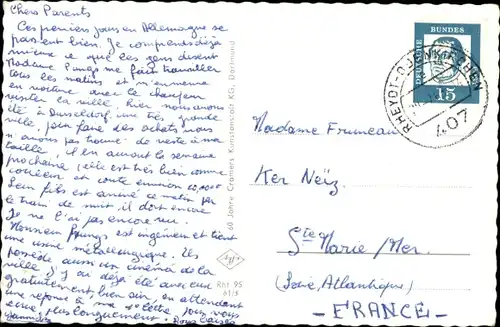 Chers Parents
Ces premiers jours en Allemagne se
passent bien. Je comprends déjà
même ce que les gens disent
Madame Pungs me fait travailler
tous les matins et m'emmène
en voiture avec le chauffeur
visiter la ville, hier nous avons
été à Dusseldorf, une très grande
ville, pour faire des achats, nous
n'avons pas trouvé de veste à ma
taille, il en aura la semaine
prochaine, elle est très bien comme
et coute environ
Son fils est arrivé ce matin par
le train de nuit, il dort encore
Je ne l'ai pas encore vu.
Monsieur Pungs est ingénieur et tient
une usine métallurgique. Ils
possède aussi un cinéma de la
ville, j'y ai déjà été avec eux
gratuitement, bien sûr, en attendant
une réponse à ma lettre, je vous
plus longuement. Bons baisers
60 Jahre Cramers Kunstanstalt KG, Dortmund
Rht 95
61/9
DEUTSCHE BUNDES
15
RHEYDT-ODENKIRCHEN
407
Madame Fruneau
Ker Neïz
Ste Marie/Mer.
(Loire Atlantique)
-FRANCE-